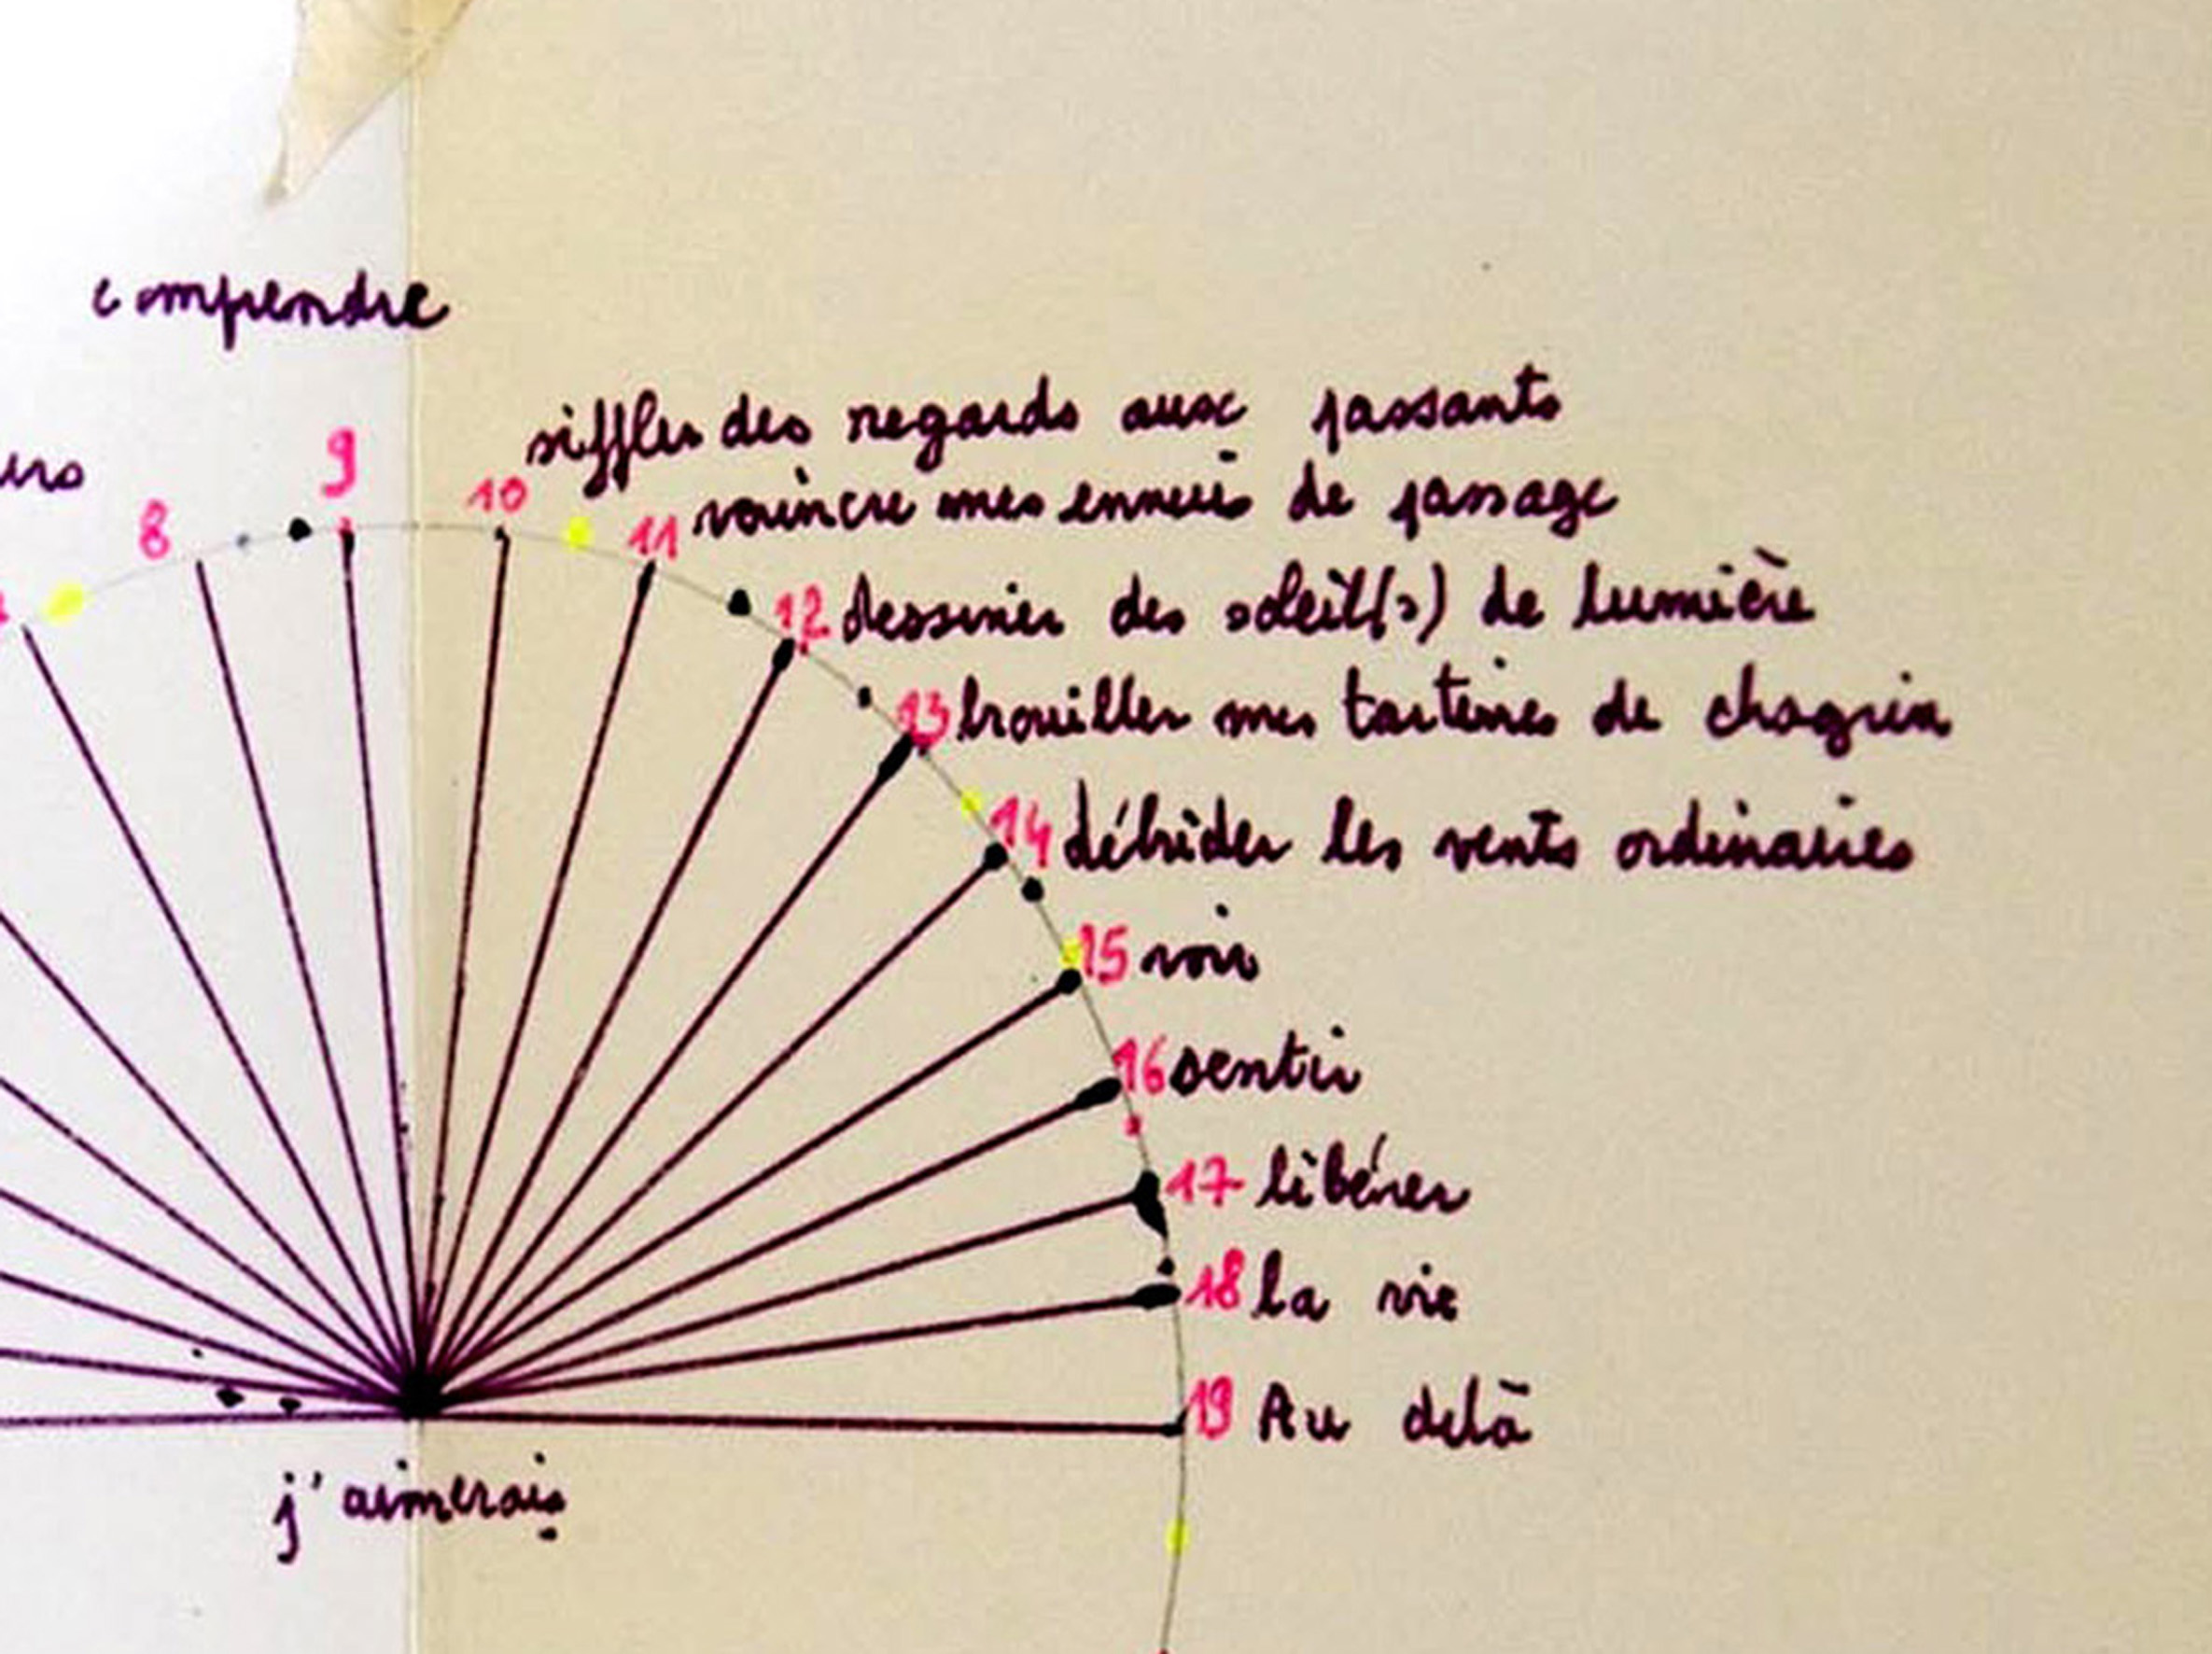 comprendre
8
9
10 siffler des regards aux passants
11 vaincre mes ennuis de passage
12 dessiner des soleil(s) de lumière
13 brouiller mes tartines de chagrin
14 débrider les vents ordinaires
15 voir
16 sentir
17 libérer
18 la vie
19 Au delà
j'aimerais